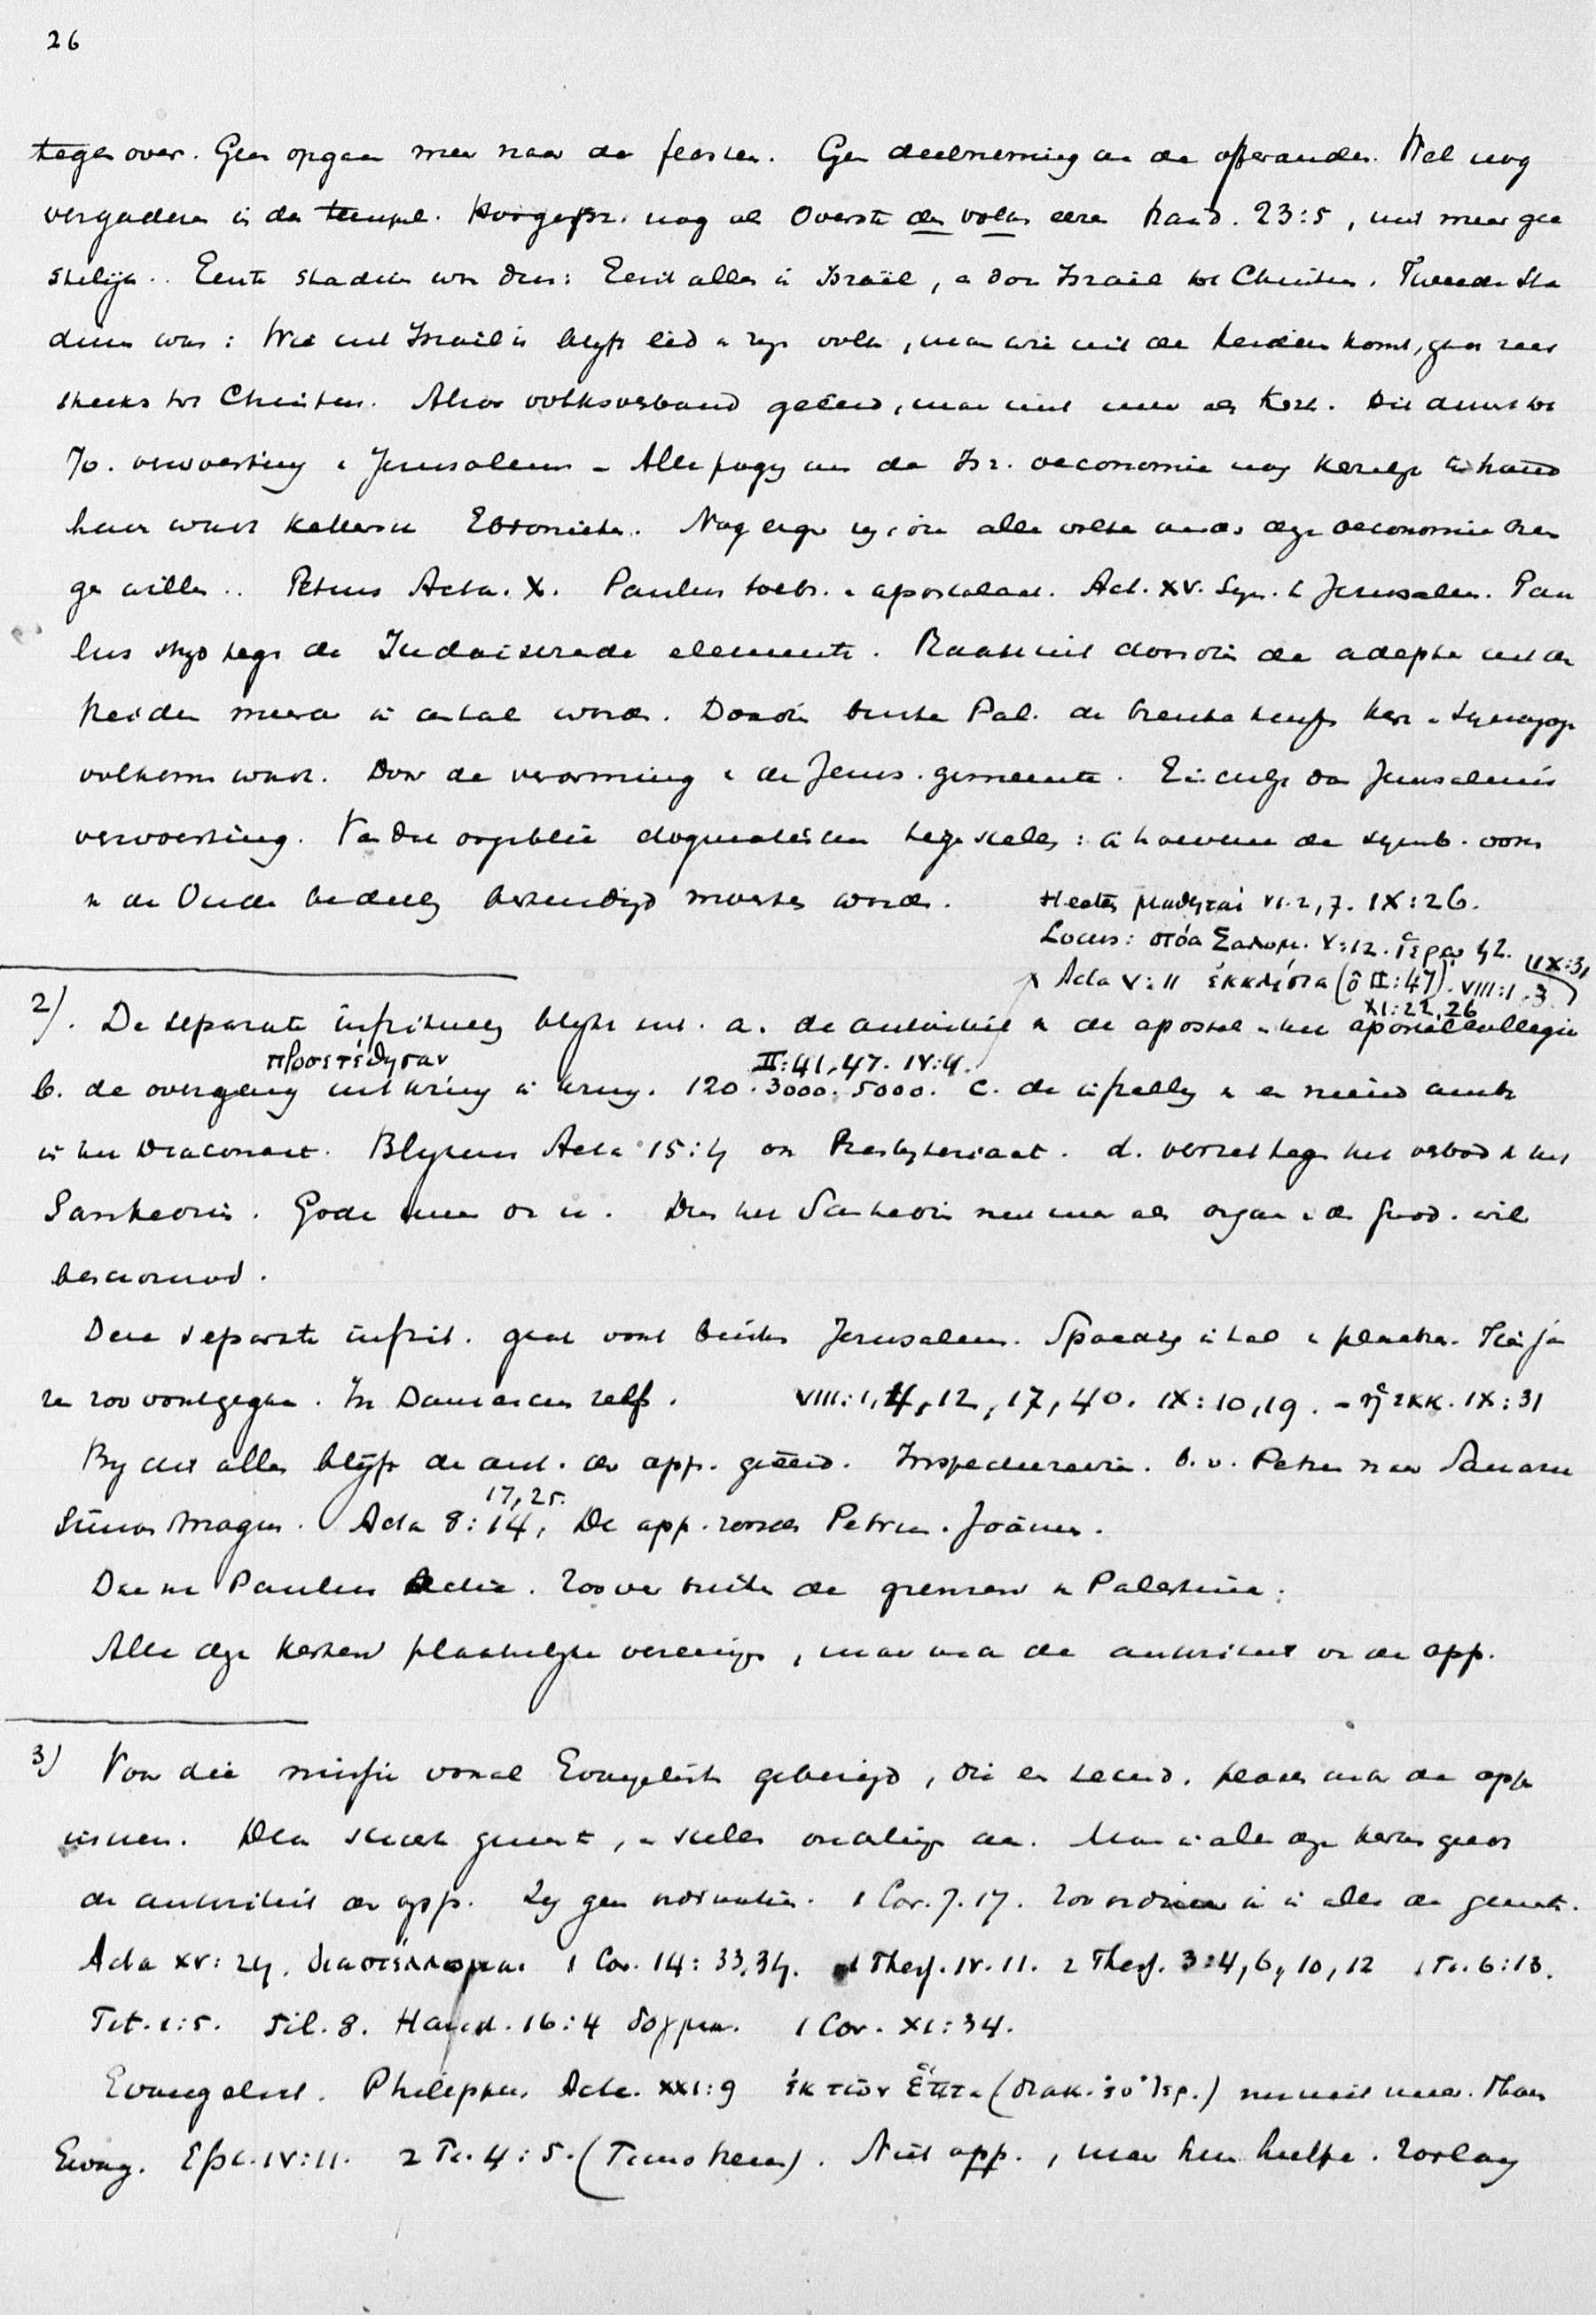 26
tegenover. Geen opgaan meer naar de feesten. Geen deelneming aan de offeranden. Wel nog
vergaderen in den tempel. Hoogepr. nog als Overste des volks eeren Hand. 23:5, niet meer gee
stelijk. Eerste stadium was dus: Eerst alles in Israël, en door Israel tot Christen. Tweede Sta
dium was: Wie uit Israel is blijft lid van zijn volk, maar wie uit de heiden komt, gaat recht
streeks tot Christen. Alzoo volksverband geëerd, maar niet meer als Kerk. Dit duurt tot
70. verwoesting v. Jerusalem - Alle poging om de Isr. oeconomie nog kerkelijk te hand
haven wordt ketterij Ebionieten. Nog erger zij die alle volken onder deze oeconomie bren
gen willen. Petrus Acta. X. Paulus toebr. v. apostolaat. Act. XV. Syn. te Jerusalem. Pau
lus strijd tegen de Judaiserende elementen. Raakt uit doordien de adepten uit de
heiden meer in aantal worden. Doordien buiten Pal. de breuke tusschen Kerk en Synagoge
volkomen wordt. Door de verarming v. de Jerus. gemeente. Eindelijk door Jerusalems
verwoesting. Van die oogenblik dogmatischen tegenstelling: in hoeverre de symb. vorm
van de Oude bedeeling bestendigd moesten worden.
Heeten μαθηταί VI.2,7. IX:26.
Locus: στόα Σαλομ. V:12. ἱερῷ 42.
Acta V:11 ἐκκλησία (ὁ II:47). VIII:1.3 IX:31
XI:22,26
2). De separate institueering blijkt uit. a. de autoriteit van de apostel en het apostelcollegie
προσετέθησαν II:41,47. IV:4.
b. de overgang uit kring in kring. 120. 3000. 5000. c. de instelling van een nieuw ambt
in het Diaconaat. Blijkens Acta 15:4 ook Presbyteriaat. d. verzet tegen het verbod v. het
Sanhedrin. Gode meer dan u. Dus het Sanhedrin niet meer als orgaan v. den Godd. wil
beschouwd.
Deze separate instit. gaat voort buiten Jerusalem. Spoedig in tal v. plaatsen. Klein Ja
ze zoo voortgegaan. In Damascus zelfs. VIII:1,4,12,17,40. IX:10,19. - ἡ ἐκκ. IX:31
By dit alles blijft de aut. der app. geëerd. Inspectiereizen. b.v. Petrus naar Samaria
17,25.
Simon Magus. Acta 8:14, De app. zonden Petrus. Joännes.
Daarna Paulus Actie. Zoover buiten de grenzen van Palestina.
Alle deze kerken plaatselijke vereenigd, maar onder de autoriteit van de app.
3) Voor die missie vooral Evangelisten gebezigd, die en secund. plaats onder de app
innemen. Den stichten gemeente, en stellen ouderlingen aan. Maar in alle deze kerken geldt
de autoriteit der app. Zij geven ordinantiën. 1 Cor. 7.17. Zoo ordineer ik in alle de gemeent.
Acta XV:24. διαστέλλομαι 1 Cor. 14:33,34. 1 Thess. IV.11. 2 Thess. 3:4,6,10,12 1 Ti. 6:13.
Tit. 1:5. Fil. 8. Hand. 16:4 δογμα. 1 Cor. XI:34.
Evangelist. Philippus. Acta. XXI:9 ἐκ τῶν ἑπτα (diak. to Jer.) nu niet meer. Thans
Evang. Eph. IV:11. 2 Ti. 4:5. (Timotheus). Niet app., maar hun hulpe. Zoolang